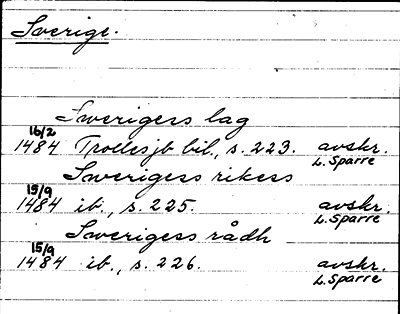 Sverige.
Swerigess lag
16/2
1484 Trollesjb bil., s. 223. avskr.
L. Sparre
Swerigess rikess
15/9
1484 ib., s. 225. avskr.
L. Sparre
Swerigess rådh
15/9
1484 ib., s. 226. avskr.
L. Sparre